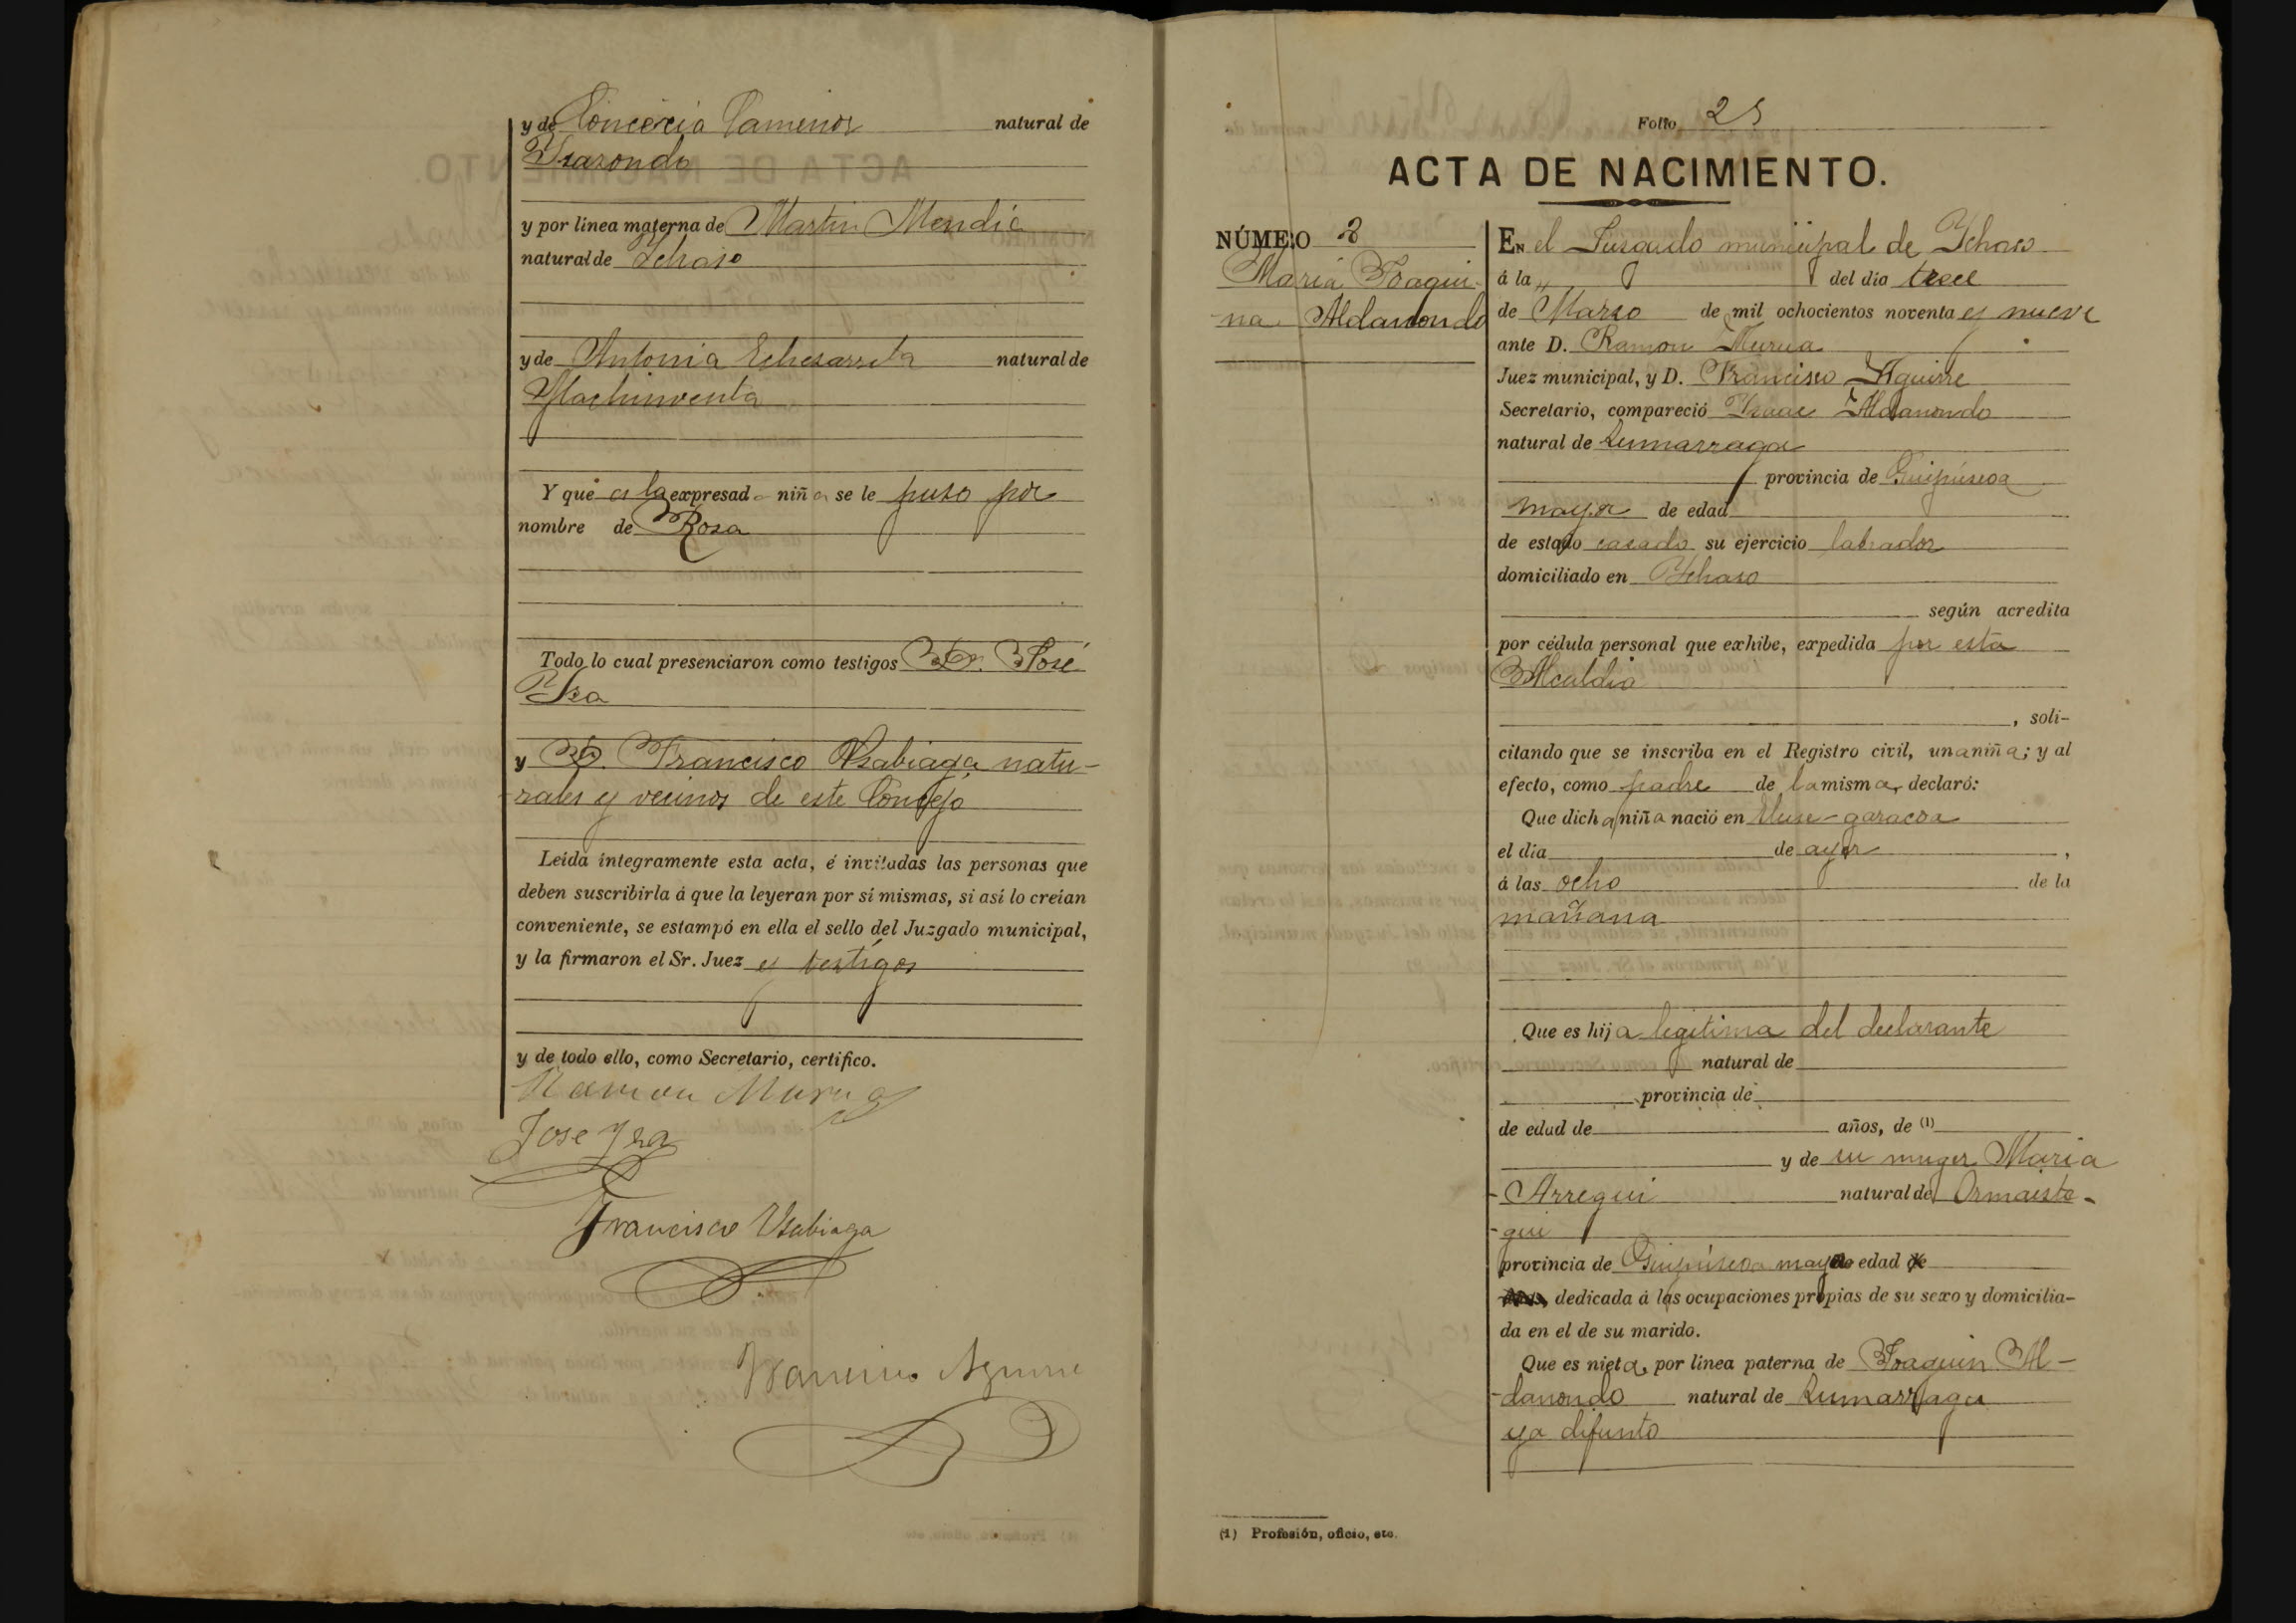 y de Concexia Camenor natural de
Isasondo
y por línea materna de Martin Mendia
natural de Ychaso
y de Antonia Echezarreta natural de
Machinventa
Y que a la expresada niña se le puso por
nombre de Rosa
Todo lo cual presenciaron como testigos D. José
Ysa
y D. Francisco Usabiaga natu-
rales y vecinos de este Concejo
Leída íntegramente esta acta, é invitadas las personas que
deben suscribirla á que la leyeran por sí mismas, si así lo creían
conveniente, se estampó en ella el sello del Juzgado municipal,
y la firmaron el Sr. Juez y testigos
y de todo ello, como Secretario, certifico.
Ramon Murua
Jose Ysa
Francisco Usabiaga
Francisco Aguirre
Folio 25
ACTA DE NACIMIENTO.
NÚMERO 2
Maria Joaqui-
na Aldanondo
EN el Jusgado municipal de Ychaso
á la " del día trece
de Marzo de mil ochocientos noventa y nueve
ante D. Ramon Murua
Juez municipal, y D. Francisco Aguirre
Secretario, compareció Ysaac Aldanondo
natural de Zumarraga
provincia de Guipúscoa
mayor de edad
de estado casado su ejercicio labrador
domiciliado en Ychaso
según acredita
por cédula personal que exhibe, expedida por esta
Alcaldia
, soli-
citando que se inscriba en el Registro civil, una niña; y al
efecto, como padre de la misma, declaró:
Que dicha niña nació en garacoa
el día de ayer ,
á las ocho de la
mañana
Que es hija legitima del declarante
natural de
provincia de
de edad de años, de (1)
y de su muger Maria
Arregui natural de Ormaiste-
gui
provincia de Guipúscoa mayor de edad
dedicada á las ocupaciones propias de su sexo y domicilia-
da en el de su marido.
Que es nieta, por línea paterna de Joaquin Al-
danondo natural de Zumarraga
ya difunto
(1) Profesión, oficio, etc.